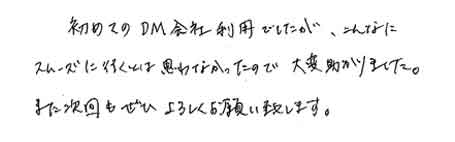 初めてのDM会社利用でしたが、こんなに
スムーズに行くとは思わなかったので大変助かりました。
また次回もぜひよろしくお願い致します。